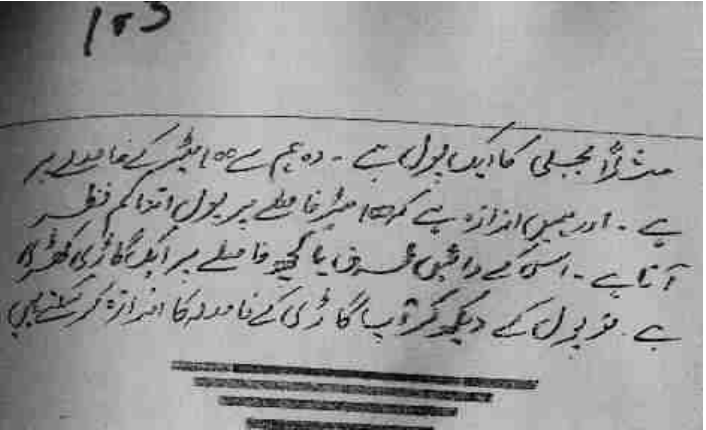 103
مثلاً بجلی کا ایک پول ہے - وہ ہم سے 100 میٹر کے فاصلے پر
ہے - اور ہمیں اندازہ ہے کہ 100 میٹر فاصلے پر پول اتنا کم نظر
آتا ہے - اس کے دائیں طرف یا کچھ فاصلے پر ایک گاڑی کھڑی
ہے - تو پول کے دیکھ کر آپ گاڑی کے فاصلہ کا اندازہ کر سکتے ہیں